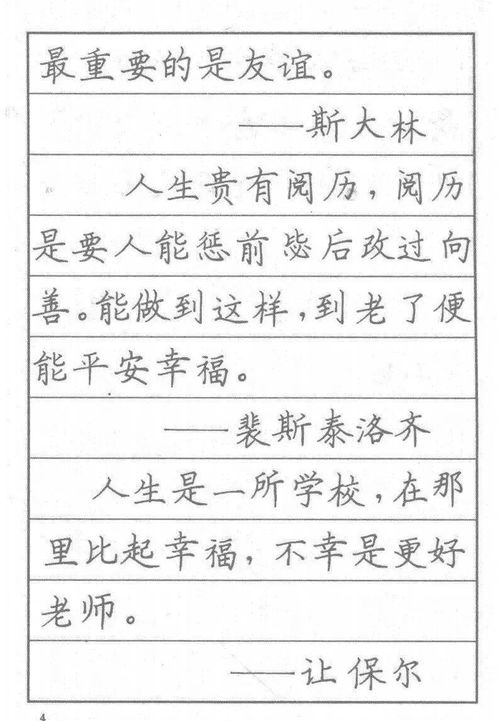 最重要的是友谊。
——斯大林
人生贵有阅历，阅历
是要人能惩前毖后改过向
善。能做到这样，到老了便
能平安幸福。
——裴斯泰洛齐
人生是一所学校，在那
里比起幸福，不幸是更好
老师。
——让 保尔
4